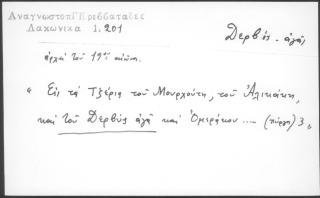 Ἀναγνωστοπ Πρεββατάδες
Λακωνικὰ 1, 201
Δερβύς - ἀγᾶ,
ἀρχαὶ τοῦ 19ου αἰῶν.
" Εἰς τὰ Τζέρια τοῦ Μουρχούτη, τοῦ Ἀλικάκη,
καὶ τοῦ Δερβύς ἀγᾶ καὶ Ὁμεράκου .... (πύργοι) 3 "